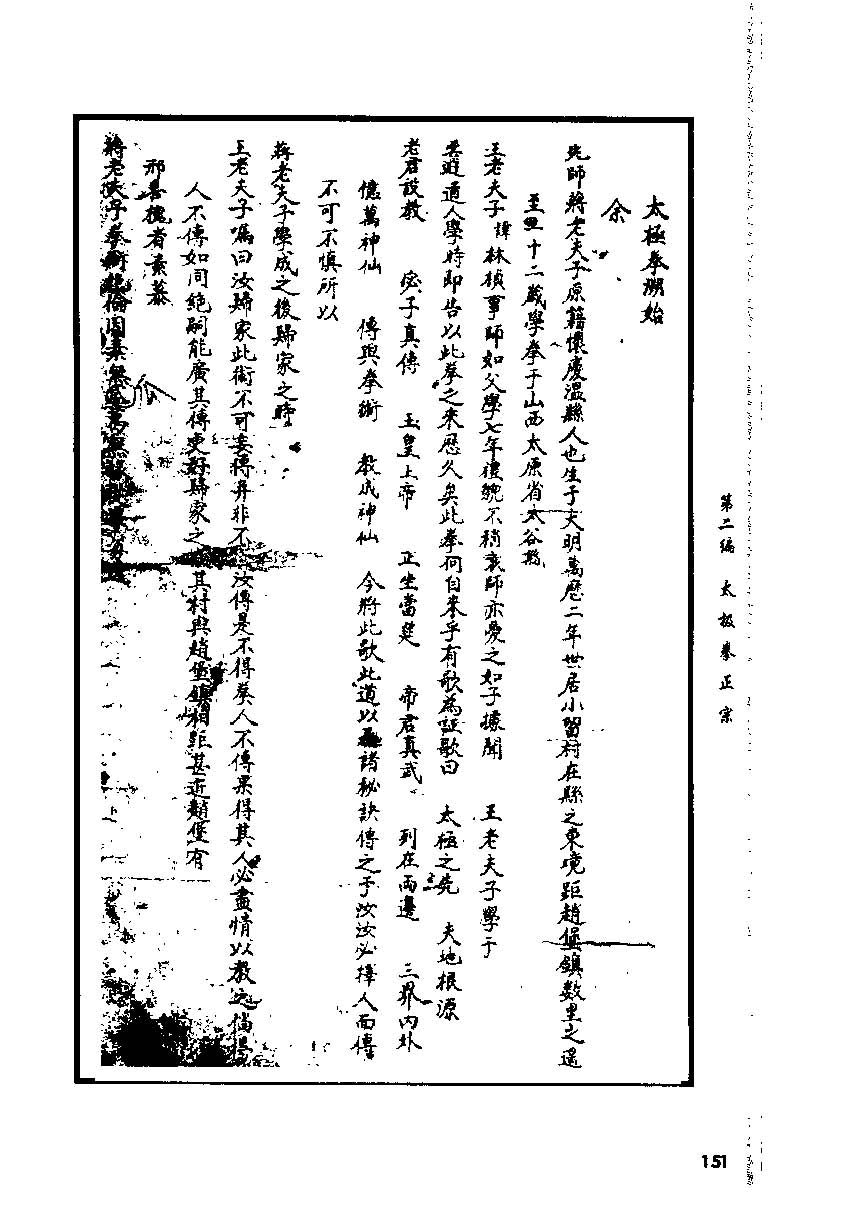 太極拳溯始
余
先師蔣老夫子原籍懷慶溫縣人也生于大明萬歷二年世居小留村在縣之東境距趙堡鎮数里之遥
至二十二歲學拳于山西太原省太谷縣
王老夫子諱林楨事師如父學七年禮貌不稍衰師亦愛之如子據聞 王老夫子學于
雲遊道人學時即告以此拳之來歷久矣此拳何自來乎有歌為証歌曰 太極之先 天地根源
老君設教 宓子真傳 玉皇上帝 正坐當筵 帝君真武 列在兩邊 三界內外
億萬神仙 傳與拳術 教成神仙 今將此歌此道以及諸秘訣傳之于汝汝必擇人而傳
不可不慎所以
蔣老夫子學成之後歸家之時
王老夫子囑曰汝歸家此術不可妄傳弁非不汝傳是不得葉人不傳果得其人必盡情以教之倘
人不傳如同絶嗣能廣其傳更好歸家之其村與趙堡鎮相距甚近趙堡有
邢喜槐者素慕
蔣老夫子拳術絶倫因素無
第二编 太极拳正宗
151